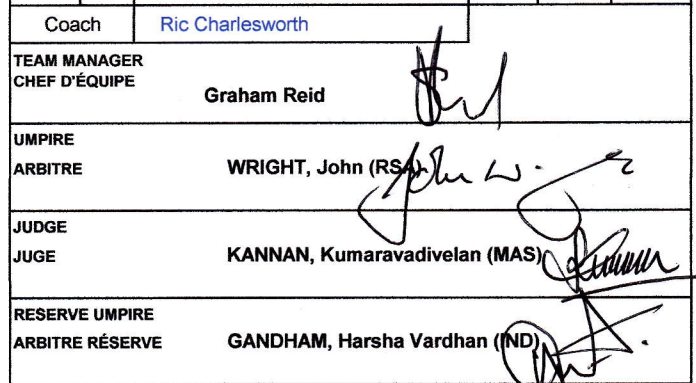 Coach Ric Charlesworth
TEAM MANAGER
CHEF D'ÉQUIPE
Graham Reid
UMPIRE
ARBITRE WRIGHT, John (RSA)
John W.
JUDGE
JUGE KANNAN, Kumaravadivelan (MAS)
RESERVE UMPIRE
ARBITRE RÉSERVE GANDHAM, Harsha Vardhan (IND)